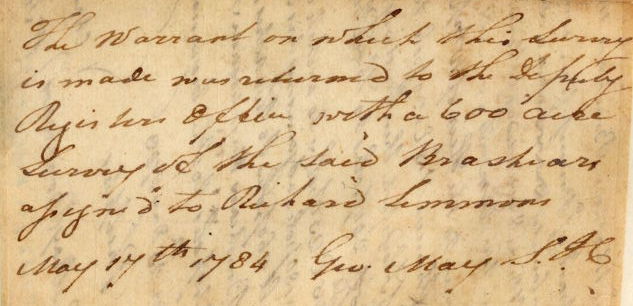 The Warrant on which this Survey
is made was returned to the Deputy
Registers Office with a 600 acre
Survey of the said Brashears
assign'd to Richard Simmons
May 17th 1784 Geo. May S.J.C